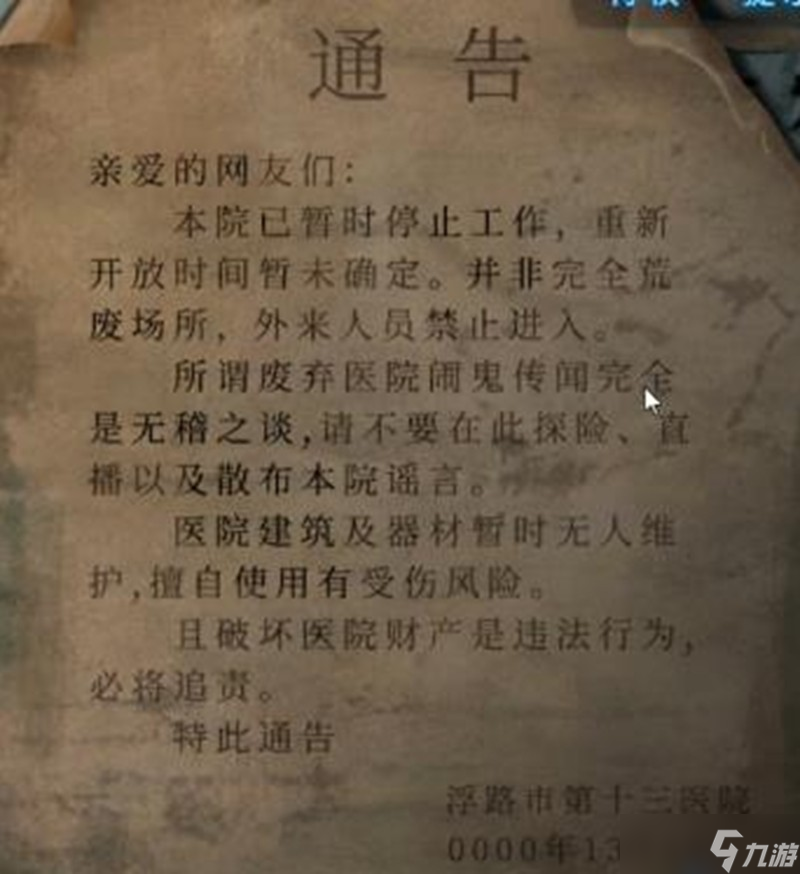 通告
亲爱的网友们：
本院已暂时停止工作，重新
开放时间暂未确定。并非完全荒
废场所，外来人员禁止进入。
所谓废弃医院闹鬼传闻完全
是无稽之谈,请不要在此探险、直
播以及散布本院谣言。
医院建筑及器材暂时无人维
护,擅自使用有受伤风险。
且破坏医院财产是违法行为,
必将追责。
特此通告
浮路市第十三医院
0000年13
九游